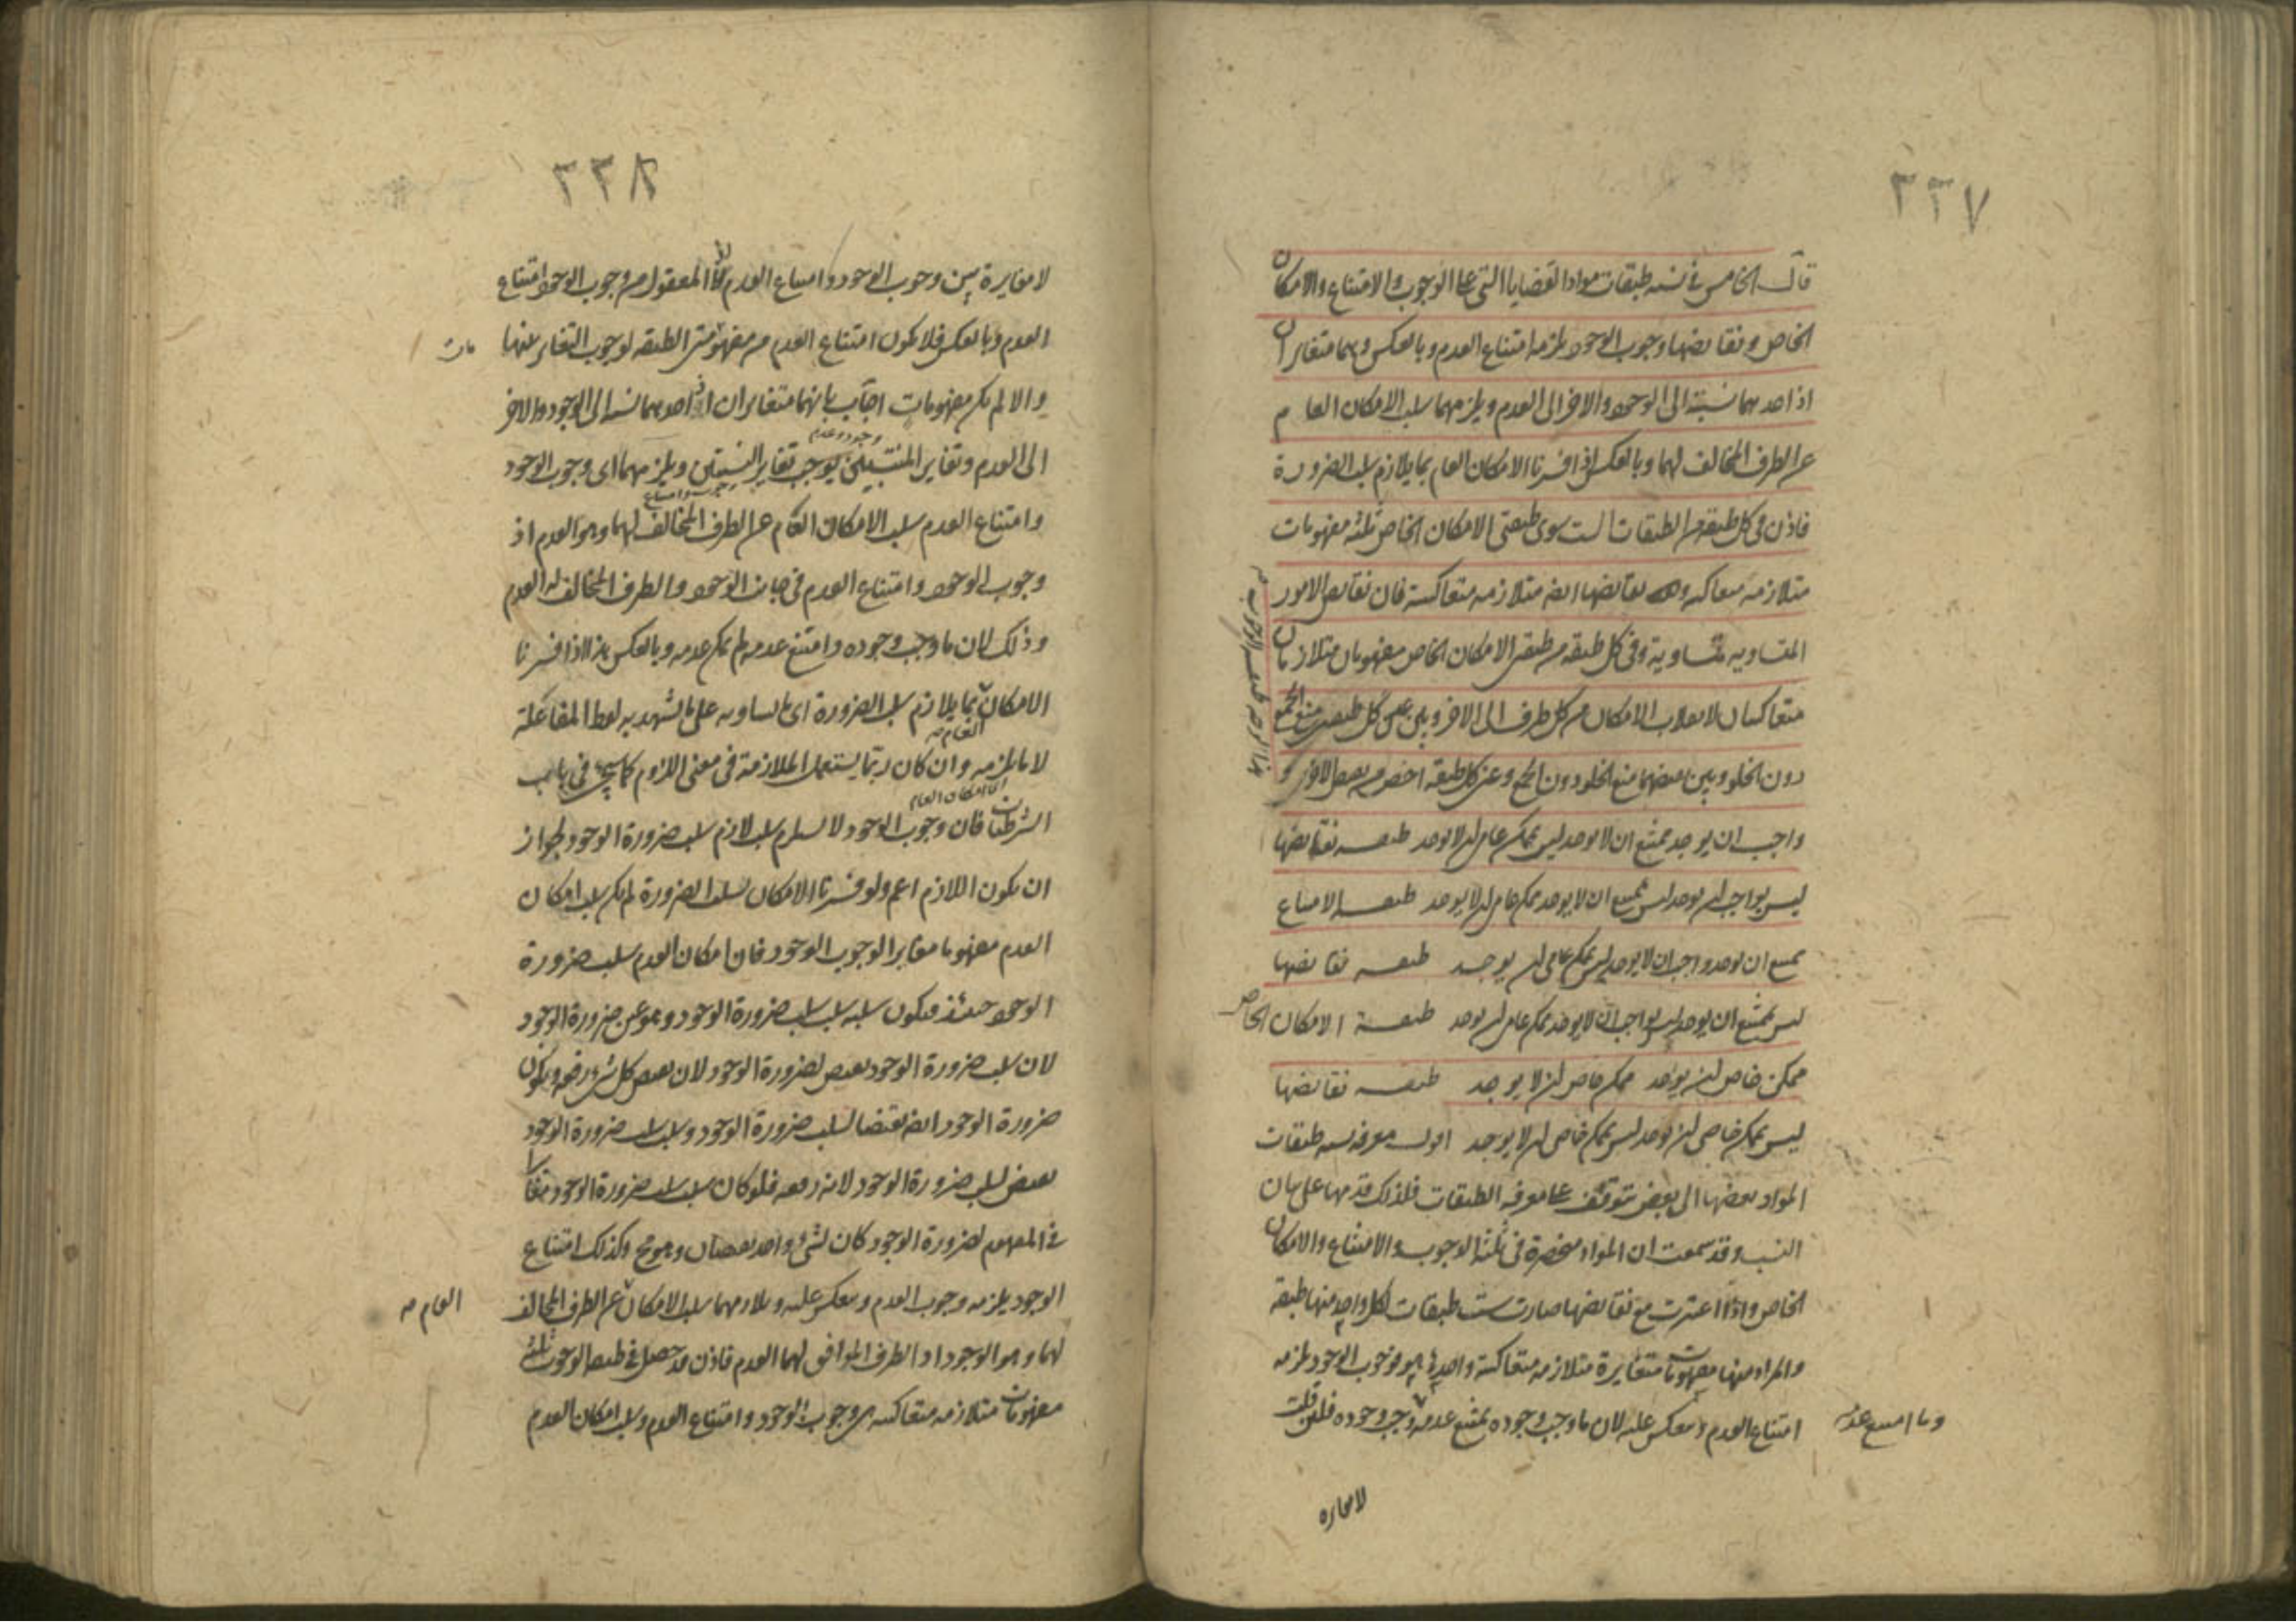 ٣٣٧
قال الخامس في نسبة طبقات مواد القضايا التي هي الوجوب والامتناع والامكان
الخاص ونقايضها وجوب الوجود يلزمه امتناع العدم وبالعكس وهما متغايران
اذ احدهما نسبته الى الوجود والاخر الى العدم ويلزمهما سلب الامكان العام
عن الطرف المخالف لهما وبالعكس اذا فسرنا الامكان العام بما يلازم سلب الضرورة
فاذن في كل طبقة من الطبقات الست سوى طبقتي الامكان الخاص ثلثة مفهومات
متلازمه متعاكسه ونقايضها ايضا متلازمه متعاكسة فان نقايض الامور
المتساويه متساوية وفي كل طبقه من طبقتي الامكان الخاص مفهومان متلازمان
متعاكسان لانقلاب الامكان من كل طرف الى الاخر وبين عيني كل طبقتين منع الجمع
دون الخلو وبين نقيضهما منع الخلو دون الجمع وعين كل طبقة اخص من نقيض الاخرى
واجب ان يوجد ممتنع ان لا يوجد ليس بممكن عام ان لا يوجد طبقـــه نقايضها
ليس بواجب ان يوجد ليس بممتنع ان لا يوجد ممكن عام ان لا يوجد طبقـــه الامتناع
ممتنع ان يوجد واجب ان لا يوجد ليس بممكن عام ان يوجد طبقـــه نقايضها
ليس بممتنع ان يوجد ليس بواجب ان لا يوجد ممكن عام ان يوجد طبقـــة الامكان الخاص
ممكن خاص ان يوجد ممكن خاص ان لا يوجد طبقـــه نقايضها
ليس بممكن خاص ان يوجد ليس بممكن خاص ان لا يوجد اقول معرفة نسبة طبقات
المواد بعضها الى بعض تتوقف على معرفة الطبقات فلذلك قدمها على بيان
النسب وقد سمعت ان المواد منحصرة في ثلثة الوجوب والامتناع والامكان
الخاص واذا اعتبرت مع نقايضها صارت ست طبقات لكل واحد منها طبقة
والمراد منها مفهومات متغايرة متلازمه متعاكسة واحديها هو وجوب الوجود يلزمه
امتناع العدم وينعكس عليه لان ما وجب وجوده يمتنع عدمه وجب وجوده فلئن قلت
وما امتنع عدمه
لا مغايره
٣٣٨
لا مغايرة بين وجوب الوجود وامتناع العدم لان المعقول من وجوب الوجود امتناع
العدم وبالعكس فلا يكون امتناع العدم من مفهومتي الطبقه لوجوب التغاير بينها
والا لم يكن مفهومات اجاب بانهما متغايران اذ احدهما نسبه الى الوجود والاخر
الى العدم وتغاير المنتسبين يوجب تغاير النسبتين ويلزمهما اى وجوب الوجود
وجود وعدم
وامتناع العدم سلب الامكان العام عن الطرف المخالف لهما وهو العدم اذ
وجوب الوجود وامتناع العدم في جانب الوجود والطرف المخالف له العدم
وذلك لان ما وجب وجوده وامتنع عدمه لم يمكن عدمه وبالعكس هذا اذا فسرنا
الامكان بما يلازم سلب الضرورة اى ما يساويه على ما يشهد به لفظ المفاعلة
العام صه
لا ما يلزمه وان كان ربما يستعمل الملازمة في معنى اللزوم كما سيجئ في باب
الشرطيات فان وجوب الوجود لا يستلزم سلب لازم سلب ضرورة الوجود لجواز
اى الامكان العام
ان يكون اللازم اعم ولو فسرنا الامكان بسلب الضرورة لم يكن سلب امكان
العدم مفهوما مغايرا لوجوب الوجود فان امكان العدم سلب ضرورة
الوجود حينئذ فيكون سلبه سلب سلب ضرورة الوجود وهو عين ضرورة الوجود
لان سلب ضرورة الوجود نقيض لضرورة الوجود لان نقيض كل شئ رفعه ويكون
ضرورة الوجود ايضا نقيضا لسلب ضرورة الوجود وسلب سلب ضرورة الوجود
نقيض لسلب ضرورة الوجود لانه رفعه فلو كان سلب سلب ضرورة الوجود مغايرا
في المفهوم لضرورة الوجود كان لشئ واحد نقيضان وهو مح وكذلك امتناع
الوجود يلزمه وجوب العدم وينعكس عليه ويلازمهما سلب الامكان عن الطرف المخالف
العام صه
لهما وهو الوجود اذ الطرف الموافق لهما العدم فاذن قد حصل في طبقة الوجوب ثلثة
مفهومات متلازمه متعاكسه هي وجوب الوجود وامتناع العدم وسلب امكان العدم